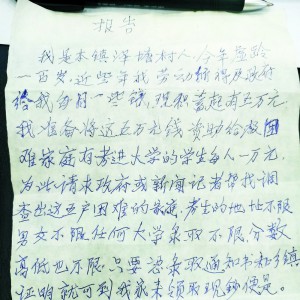 报告
我是本镇泽塘村人，今年虚龄
一百岁，近些年我劳动所得及政府
给我每月一些钱，现积蓄起有五万元，
我准备将这五万元钱资助给困
难家庭有考进大学的学生每人一万元，
为此请求政府或新闻记者帮我调
查出这五户困难的家庭，考生的地址不限
男女不限任何大学录取不限，分数
高低也不限，只要凭录取通知书和乡镇
证明就可到我家来领取现钞便是。